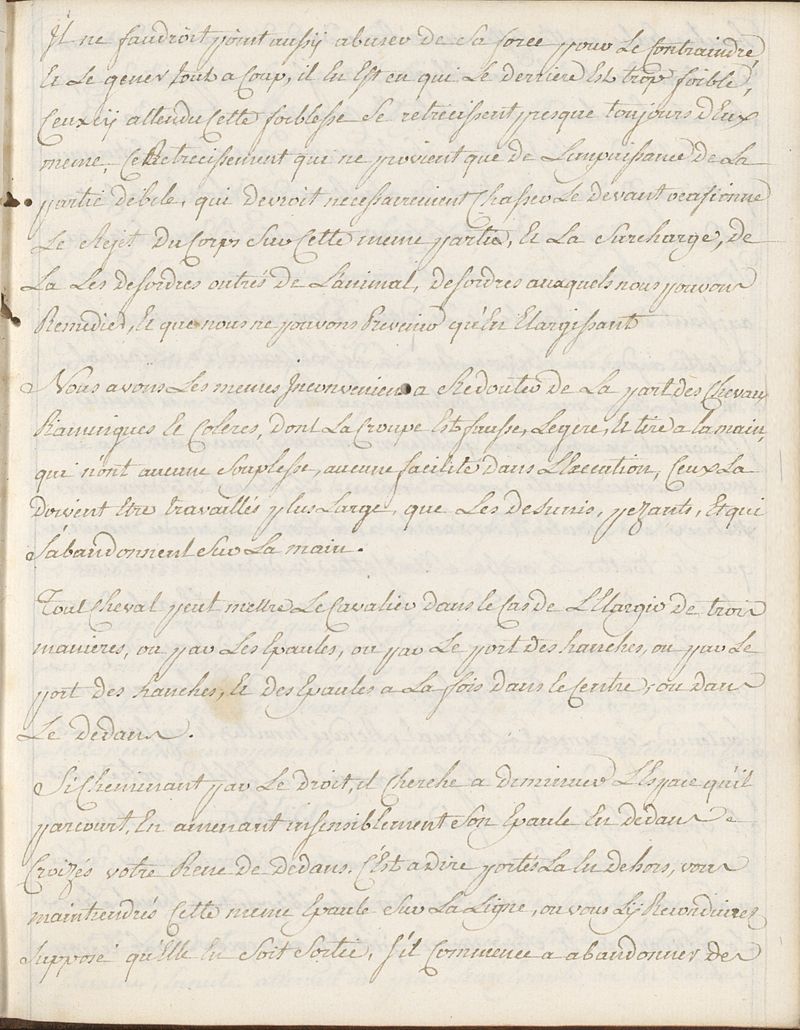 Il ne faudroit point aussy abuser de sa force pour le contraindre
Et Le gener tout a coup, il En Est en qui Le derriere Est trop foible,
Ceux cy attendu Cette foiblesse se retrecissent presque toujours d'Eux
meme, Ce Retrecissement qui ne provient que de L'impuissance de La
partie debile, qui devroit necessairement Chasser Le devant ocasionne
Le Rejet du Corps sur Cette meme partie, Et La surcharge, de
La Les desordres outrés de L'animal, desordres auxquels nous pouvons
Remedier, Et que nous ne pouvons Prevenir qu'En Elargissant
Nous avons Les memes Inconveniens a Redouter de La part des Chevaux
Ramingues Et Coleres, dont La Croupe Est fausse, Legere, Et tire a la main,
qui n'ont aucune souplesse, aucune facilité dans L'Execution, Ceux La
doivent Etre travaillés plus Large, que Les desunis, pezants, Et qui
s'abandonnent sur La main.
Tout Cheval peut mettre Le Cavalier dans le Cas de L'Elargir de trois
manieres, ou par Les Epaules, ou par Le port des hanches, ou par Le
port des hanches, Et des Epaules a La fois dans le Centre, ou dans
Le dedans.
Si Cheminant par Le droit, il Cherche a diminuer L'Espace qu'il
parcourt, En amenant insensiblement son Epaule En dedans
Croizés votre Rene de dedans, C'Est a dire portés La En dehors, vous
maintiendrés Cette meme Epaule sur La Ligne, ou vous L'y Reconduirez
supposé qu'Elle En soit sortie, s'il Commence a abandonner de